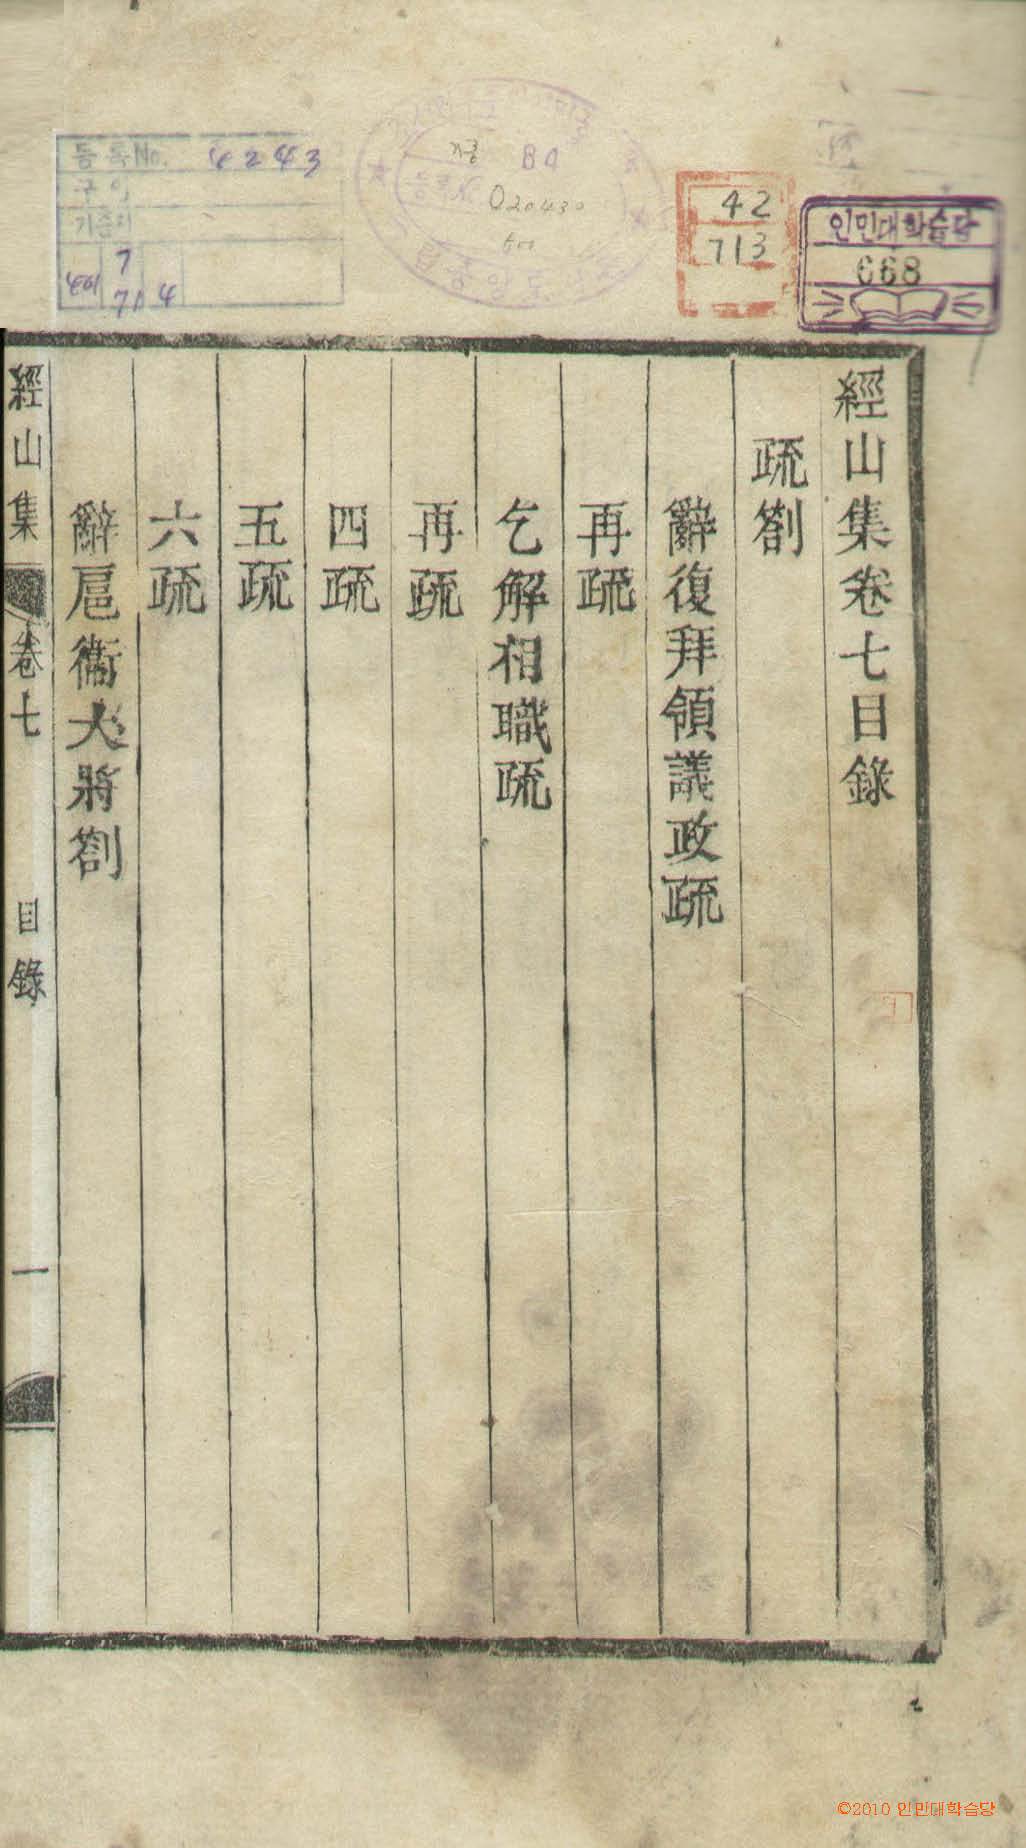 등록No. 4243
구입
기준지
7
714
B4
020430
42
713
인민대학습당
668
經山集卷七目錄
疏劄
辭復拜領議政疏
再疏
乞解相職疏
再疏
四疏
五疏
六疏
辭扈衛大將劄
經山集 卷七 目錄 一
©2010 인민대학습당